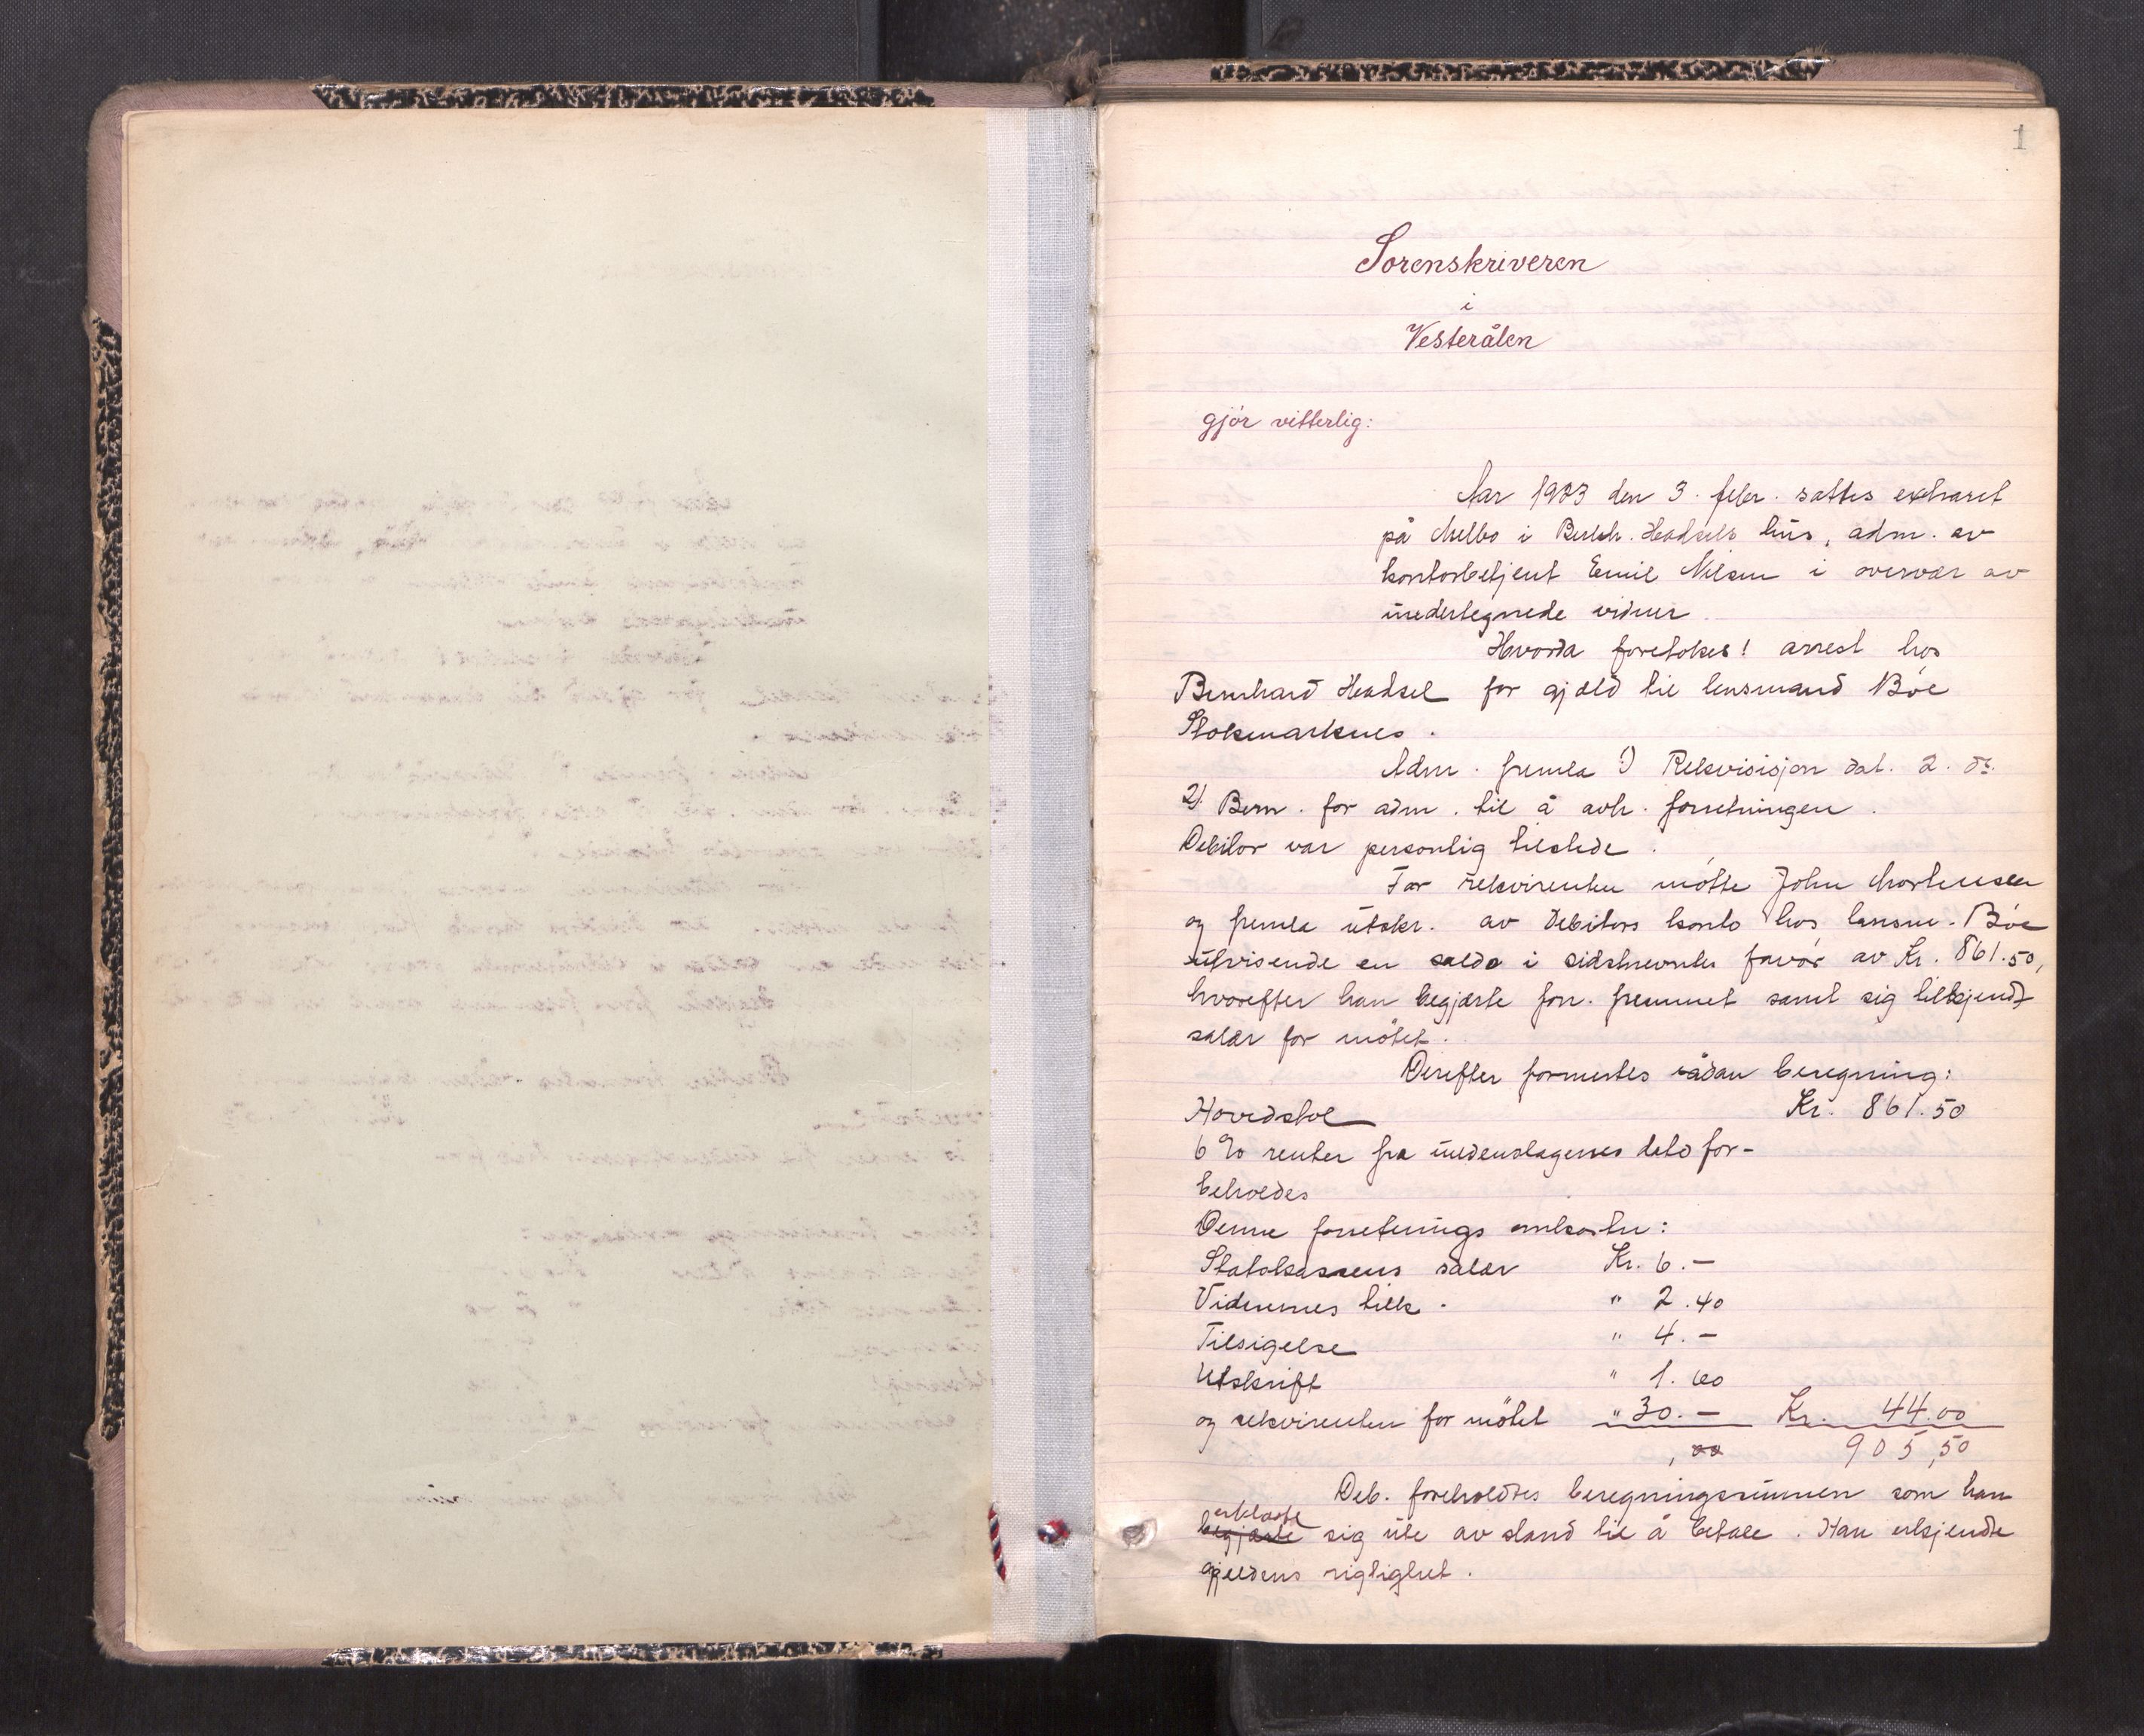 1
Sorenskriveren
i
Vesterålen
gjör vitterlig:
Aar 1923 den 3. febr. sattes extraret
på Melbo i Bernh. Hadsels hus, adm. av
kontorbetjent Emil Nilsen i overvær av
undertegnede vidner.
Hvorda foretokes! arrest hos
Bernhard Hadsel for gjæld til lensmand Böe
Stokmarknes.
Adm. fremla 1) Rekvisisjon dat. 2. ds.
2) Bem. for adm. til å avh. forretningen.
Debitor var personlig tilstede.
For rekvirenten mötte John Mortensen
og fremla utskr. av Debitors konto hos lensm. Böe
utvisende en saldo i sidstnevntes favör av Kr. 861.50,
hvorefter han begjærte forr. fremmet samt sig tilkjendt
salær for mötet.
Derefter formertes sådan beregning:
Hovedstol Kr. 861.50
6 % renter fra undenslagenes dato for-
beholdes
Denne forretnings omkostn:
Statskassens salær Kr. 6.-
Vidnernes tilk. " 2.40
Tilsigelse " 4.-
Utskrift " 1.60
og rekvirenten for mötet " 30.- Kr. 44.00
,00 905,50
Deb. foreholdtes beregningssummen som han
erklærte
begjærte sig ute av stand til å betale. Han erkjendte
gjeldens rigtighet.